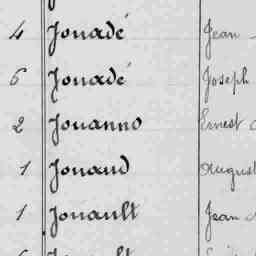 4 Jouadé Jean
6 Jouadé Joseph
2 Jouanno Ernest
1 Jouaud August
1 Jouault Jean